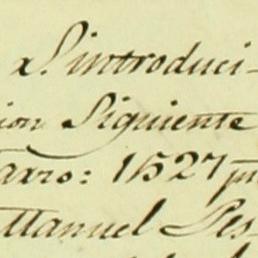 S. introduci-
ion Siguiente
axro: 1527 pu
Manuel Pes-